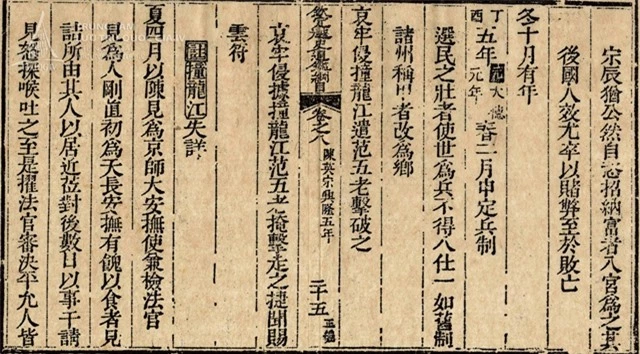 宗辰猶公然自恣招納富者入宮為之其
後國人效尤卒以賭弊至於敗亡
冬十月有年
丁酉五年元大德元年春二月申定兵制
選民之壯者使世爲兵不得入仕一如舊制
諸州稱甲者改為鄉
哀牢侵撞龍江遣范五老擊破之
欽定越史通鑑綱目 卷之八 陳英宗興隆五年 二十五 正編
哀牢侵據撞龍江范五老掩擊走之捷聞賜
雲符
註撞龍江失詳
夏四月以陳見為京師大安撫使兼檢法官
見為人剛直初為天長安撫有餽以食者見
詰所由其人以居近莅對後數日以事干請
見怒探喉吐之至是擢法官審決平允人皆